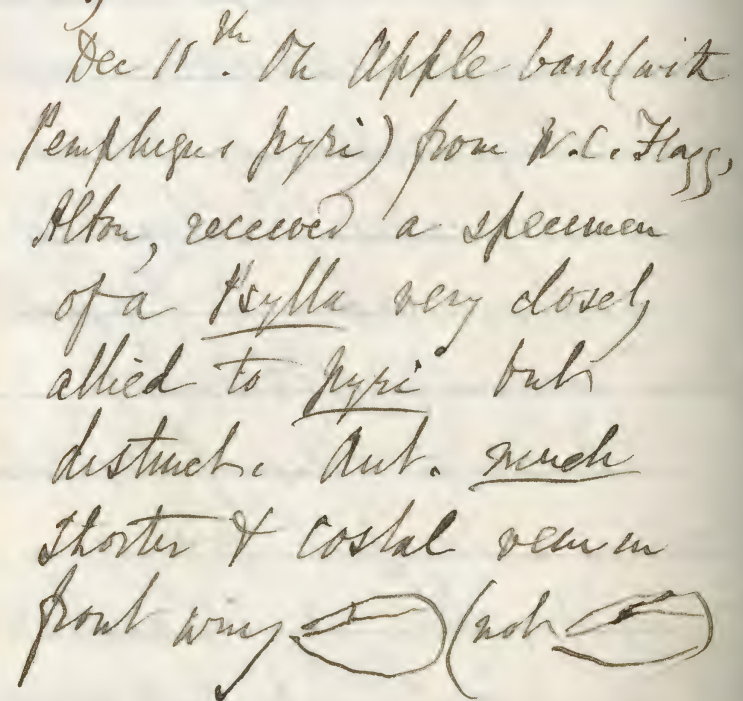 Dec 11th. On Apple bark (with
Pemphigus pyri) from W. C. Flagg,
Alton, received a specimen
of a Psylla very closely
allied to pyri but
distinct. Ant. much
shorter & costal vein in
front wing (not